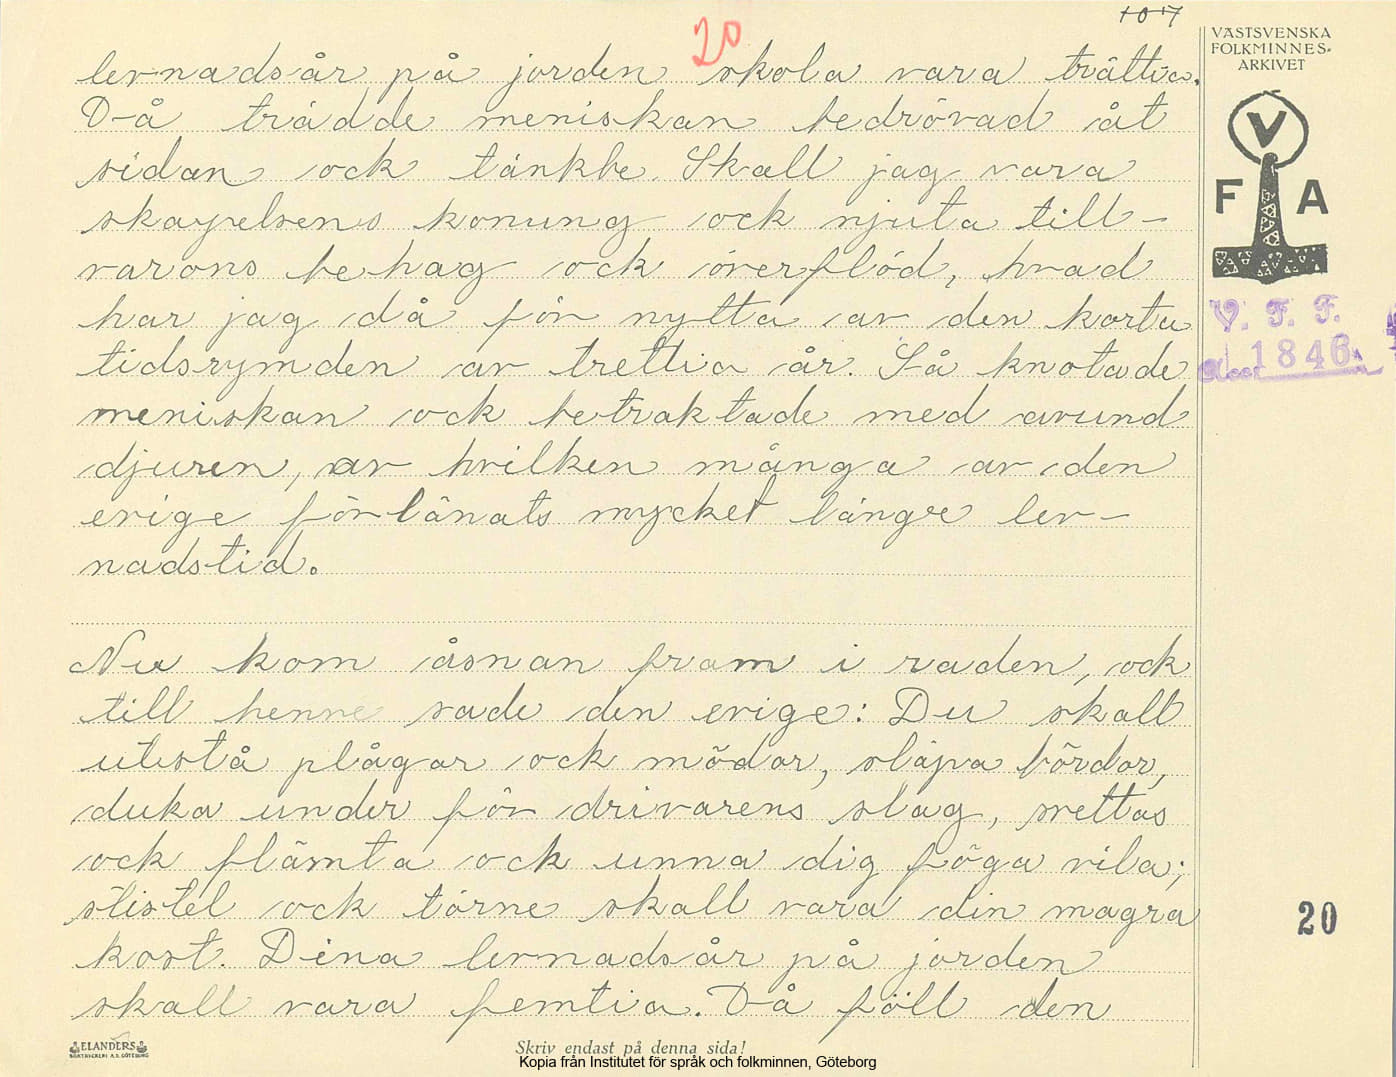 107
20
VÄSTSVENSKA
FOLKMINNES-
ARKIVET
V
F A
V. F. F.
Acc. 1846
levnadsår på jorden skola vara trättia.
Då trädde meniskan bedrövad åt
sidan ock tänkte. Skall jag vara
skapelsens konung ock njuta till-
varons behag ock överflöd, hvad
har jag då för nytta av den korta
tidsrymden av trettia år. Så knotade
meniskan ock betraktade med avund
djuren, av hvilken många av den
evige förlänats mycket längre lev-
nadstid.
Nu kom åsnan fram i raden, ock
till henne sade den evige: Du skall
utstå plågor ock mödor, släpa bördor,
duka under för drivarens slag, svettas
ock flämta ock unna dig föga vila;
stistel ock törne skall vara din magra
kost. Dina levnadsår på jorden
skall vara femtia. Då föll den
20
ELANDERS
BOKTRYCKERI A.B. GÖTEBORG
Skriv endast på denna sida!
Kopia från Institutet för språk och folkminnen, Göteborg